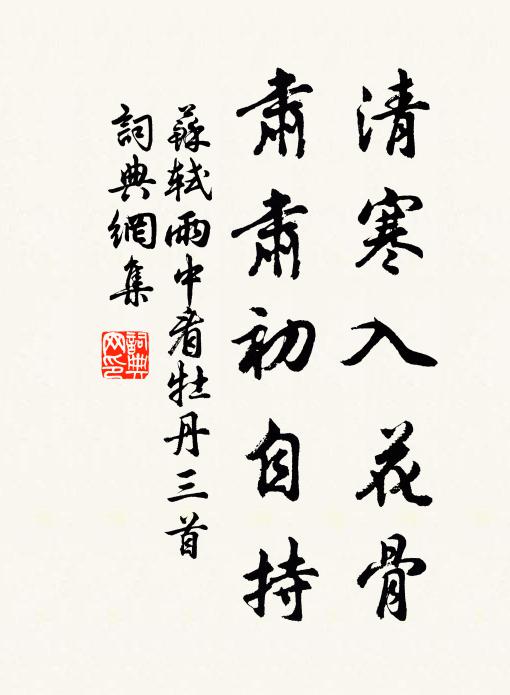 清寒入花骨
肅肅初自持
蘇軾雨中看牡丹三首
詞典網集
詞典網印